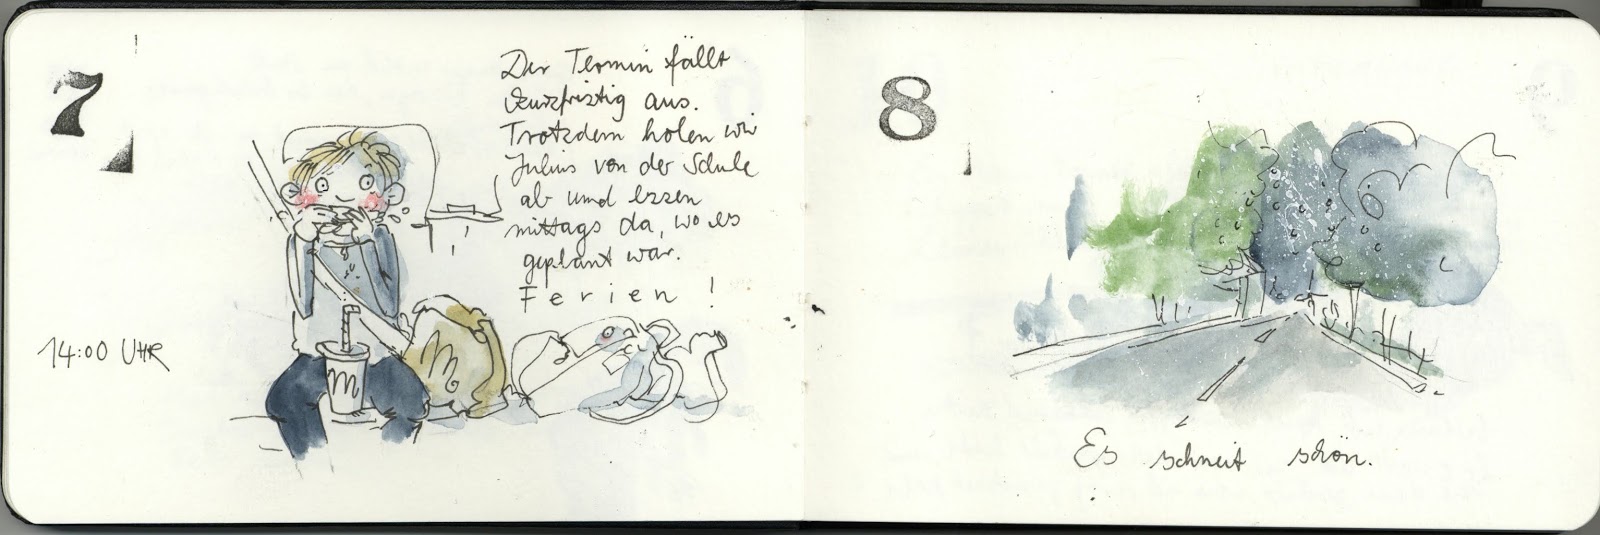 7
Der Termin fällt
kurzfristig aus.
Trotzdem holen wir
Julius von der Schule
ab und essen
mittags da, wo es
geplant war.
Ferien !
14:00 UHR
m
m
8
Es schneit schön.